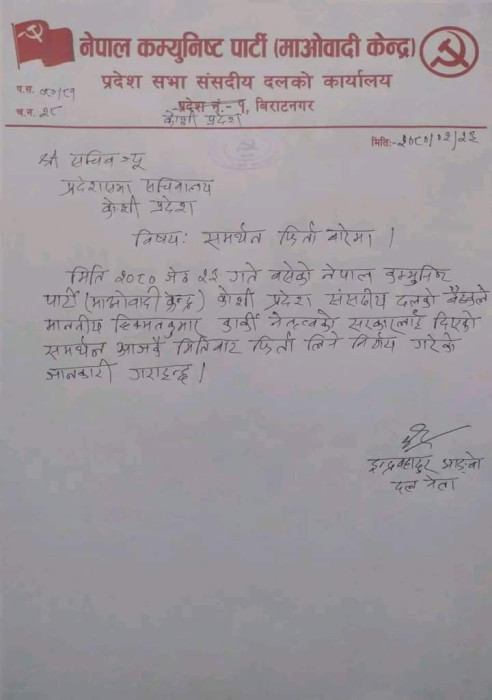 नेपाल कम्युनिष्ट पार्टी (माओवादी केन्द्र)
प्रदेश सभा संसदीय दलको कार्यालय
प.स. ७९/८०
प्रदेश नं.- १, बिराटनगर
च.न. २८
कोशी प्रदेश
मितिः-२०८०/०२/२३
श्री सचिव ज्यू
प्रदेशसभा सचिवालय
कोशी प्रदेश
विषय: समर्थन फिर्ता बारेमा ।
मिति २०८० जेठ २३ गते बसेको नेपाल कम्युनिष्ट
पार्टी (माओवादी केन्द्र) कोशी प्रदेश संसदीय दलको बैठकले
माननीय हिक्मतकुमार कार्की नेतृत्वको सरकारलाई दिएको
समर्थन आजकै मितिबाट फिर्ता लिने निर्णय गरेको
जानकारी गराइन्छ ।
इन्द्रबहादुर आङ्बो
दल नेता